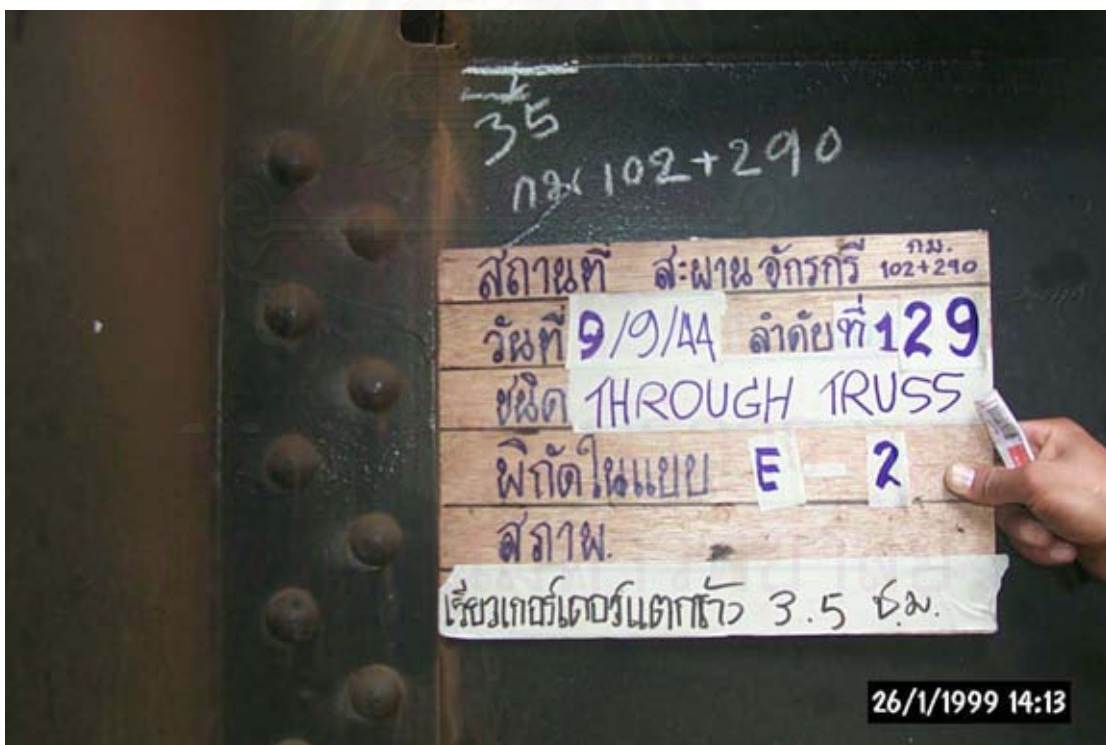 35
กม 102+290
สถานที่ สะพาน จักรกรี กม. 102+290
วันที่ 9/9/44 ลำดับที่ 129
ชนิด THROUGH TRUSS
พิกัดในแบบ E - 2
สภาพ.
เรียวเกอร์เดอร์แตกร้าว 3.5 ซ.ม.
26/1/1999 14:13